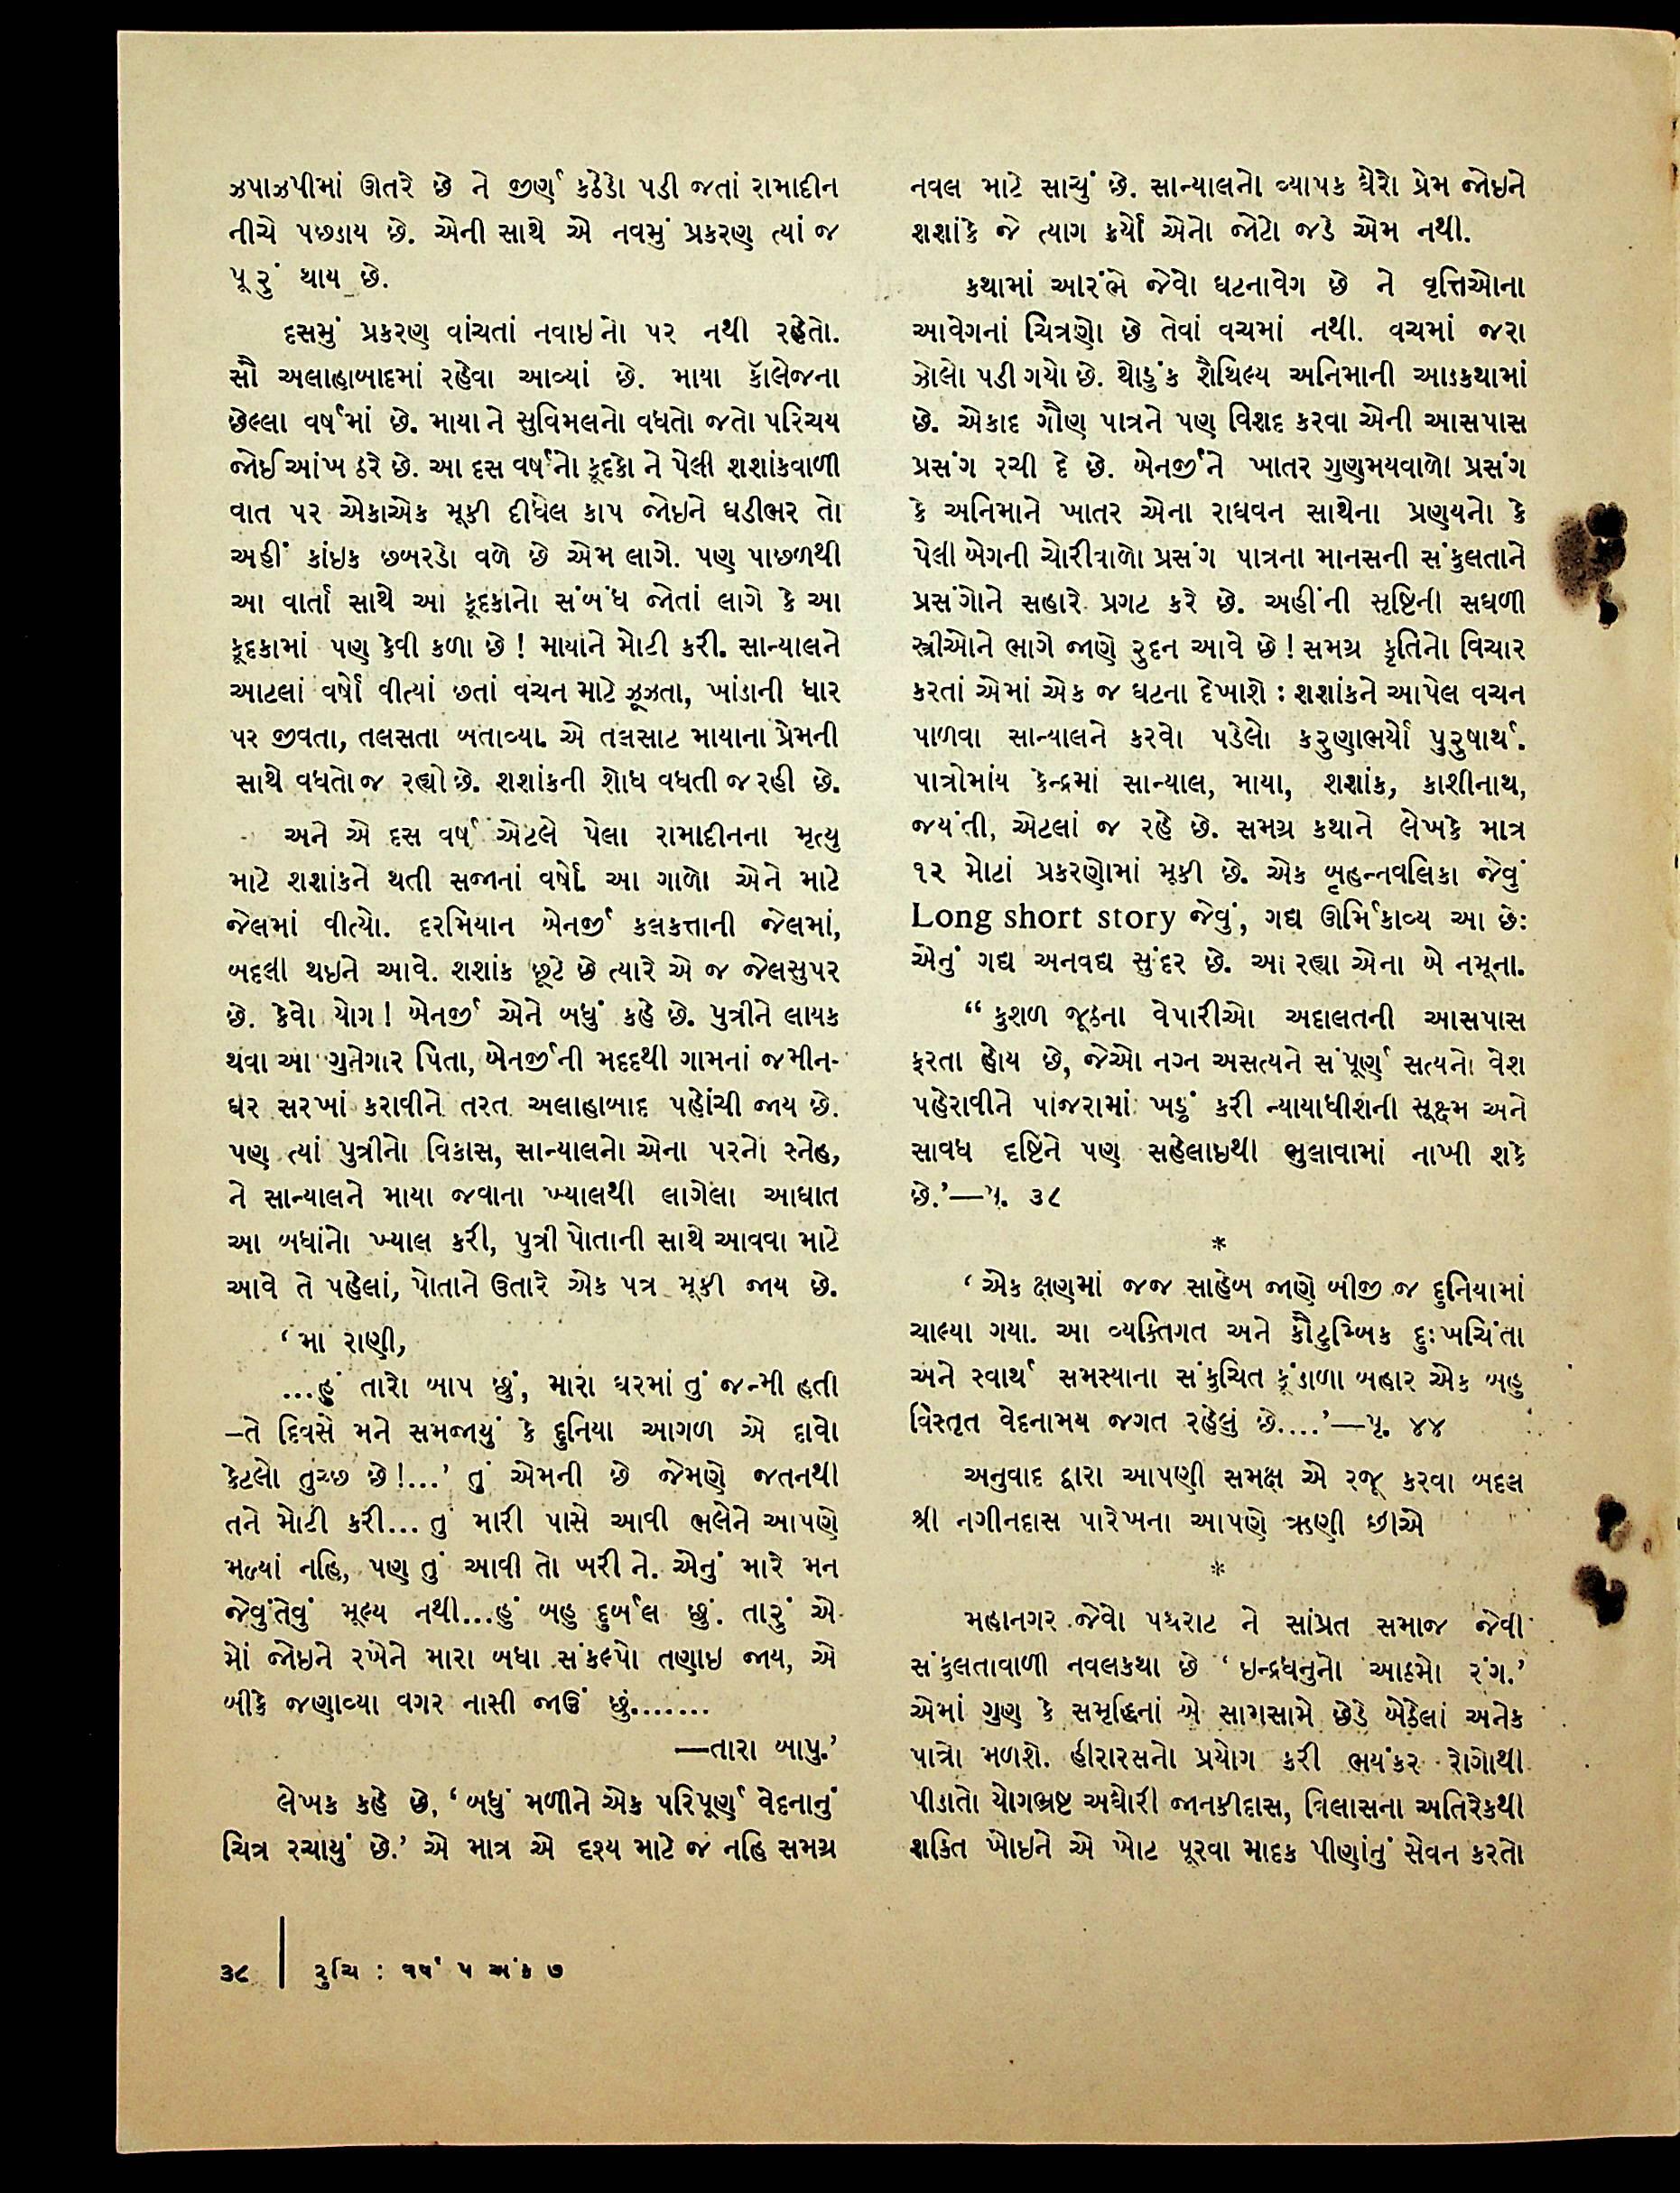 ઝપાઝપીમાં ઊતરે છે ને જીર્ણ કઠેડો પડી જતાં રામાદીન
નીચે પછડાય છે. એની સાથે એ નવમું પ્રકરણ ત્યાં જ
પૂરું થાય છે.
દસમું પ્રકરણ વાંચતાં નવાઇનો પર નથી રહેતો.
સૌ અલાહાબાદમાં રહેવા આવ્યાં છે. માયા કૉલેજના
છેલ્લા વર્ષમાં છે. માયા ને સુવિમલનો વધતો જતો પરિચય
જોઈ આંખ ઠરે છે. આ દસ વર્ષનો કૂદકો ને પેલી શશાંકવાળી
વાત પર એકાએક મૂકી દીધેલ કાપ જોઇને ઘડીભર તો
અહીં કાંઇક છબરડો વળે છે એમ લાગે. પણ પાછળથી
આ વાર્તા સાથે આ કૂદકાનો સંબંધ જોતાં લાગે કે આ
કૂદકામાં પણ કેવી કળા છે! માયાને મોટી કરી. સાન્યાલને
આટલાં વર્ષો વીત્યાં છતાં વચન માટે ઝૂઝતા, ખાંડાની ધાર
પર જીવતા, તલસતા બતાવ્યા. એ તલસાટ માયાના પ્રેમની
સાથે વધતો જ રહ્યો છે. શશાંકની શોધ વધતી જ રહી છે.
અને એ દસ વર્ષ એટલે પેલા રામાદીનના મૃત્યુ
માટે શશાંકને થતી સજાનાં વર્ષો. આ ગાળો એને માટે
જેલમાં વીત્યો. દરમિયાન બેનર્જી કલકત્તાની જેલમાં,
બદલી થઇને આવે. શશાંક છૂટે છે ત્યારે એ જ જેલસુપર
છે. કેવો યોગ! બેનર્જી એને બધું કહે છે. પુત્રીને લાયક
થવા આ ગુનેગાર પિતા, બેનર્જીની મદદથી ગામનાં જમીન-
ઘર સરખાં કરાવીને તરત અલાહાબાદ પહોંચી જાય છે.
પણ ત્યાં પુત્રીનો વિકાસ, સાન્યાલનો એના પરનો સ્નેહ,
ને સાન્યાલને માયા જવાના ખ્યાલથી લાગેલા આઘાત
આ બધાંનો ખ્યાલ કરી, પુત્રી પોતાની સાથે આવવા માટે
આવે તે પહેલાં, પોતાને ઉતારે એક પત્ર મૂકી જાય છે.
‘મા રાણી,
...હું તારો બાપ છું, મારા ઘરમાં તું જન્મી હતી
–તે દિવસે મને સમજાયું કે દુનિયા આગળ એ દાવો
કેટલો તુચ્છ છે!...’ તું એમની છે જેમણે જતનથી
તને મોટી કરી... તું મારી પાસે આવી ભલેને આપણે
મળ્યાં નહિ, પણ તું આવી તો ખરી ને. એનું મારે મન
જેવુંતેવું મૂલ્ય નથી...હું બહુ દુર્બલ છું. તારું એ
મોં જોઇને રખેને મારા બધા સંકલ્પો તણાઇ જાય, એ
બીકે જણાવ્યા વગર નાસી જાઉં છું.......
—તારા બાપુ.’
લેખક કહે છે, ‘બધું મળીને એક પરિપૂર્ણ વેદનાનું
ચિત્ર રચાયું છે.’ એ માત્ર એ દૃશ્ય માટે જ નહિ સમગ્ર
નવલ માટે સાચું છે. સાન્યાલનો વ્યાપક ઘેરો પ્રેમ જોઇને
શશાંકે જે ત્યાગ કર્યો એનો જોટો જડે એમ નથી.
કથામાં આરંભે જેવો ઘટનાવેગ છે ને વૃત્તિઓના
આવેગનાં ચિત્રણો છે તેવાં વચમાં નથી. વચમાં જરા
ઝોલો પડી ગયો છે. થોડુંક શૈથિલ્ય અનિમાની આડકથામાં
છે. એકાદ ગૌણ પાત્રને પણ વિશદ કરવા એની આસપાસ
પ્રસંગ રચી દે છે. બેનર્જીને ખાતર ગુણમયવાળો પ્રસંગ
કે અનિમાને ખાતર એના રાઘવન સાથેના પ્રણયનો કે
પેલી બેગની ચોરીવાળો પ્રસંગ પાત્રના માનસની સંકુલતાને
પ્રસંગોને સહારે પ્રગટ કરે છે. અહીંની સૃષ્ટિની સઘળી
સ્ત્રીઓને ભાગે જાણે રુદન આવે છે! સમગ્ર કૃતિનો વિચાર
કરતાં એમાં એક જ ઘટના દેખાશે : શશાંકને આપેલ વચન
પાળવા સાન્યાલને કરવો પડેલો કરુણાભર્યો પુરુષાર્થ.
પાત્રોમાંય કેન્દ્રમાં સાન્યાલ, માયા, શશાંક, કાશીનાથ,
જયંતી, એટલાં જ રહે છે. સમગ્ર કથાને લેખકે માત્ર
૧૨ મોટાં પ્રકરણોમાં મૂકી છે. એક બૃહન્નવલિકા જેવું
Long short story જેવું, ગદ્ય ઊર્મિકાવ્ય આ છે:
એનું ગદ્ય અનવદ્ય સુંદર છે. આ રહ્યા એના બે નમૂના.
“કુશળ જૂઠના વેપારીઓ અદાલતની આસપાસ
ફરતા હોય છે, જેઓ નગ્ન અસત્યને સંપૂર્ણ સત્યનો વેશ
પહેરાવીને પાંજરામાં ખડું કરી ન્યાયાધીશની સૂક્ષ્મ અને
સાવધ દૃષ્ટિને પણ સહેલાઇથી ભુલાવામાં નાખી શકે
છે.’—પૃ. ૩૮
*
‘એક ક્ષણમાં જજ સાહેબ જાણે બીજી જ દુનિયામાં
ચાલ્યા ગયા. આ વ્યક્તિગત અને કૌટુમ્બિક દુઃખચિંતા
અને સ્વાર્થ સમસ્યાના સંકુચિત કૂંડાળા બહાર એક બહુ
વિસ્તૃત વેદનામય જગત રહેલું છે....’—પૃ. ૪૪
અનુવાદ દ્વારા આપણી સમક્ષ એ રજૂ કરવા બદલ
શ્રી નગીનદાસ પારેખના આપણે ઋણી છીએ
*
મહાનગર જેવો પથરાટ ને સાંપ્રત સમાજ જેવી
સંકુલતાવાળી નવલકથા છે ‘ઇન્દ્રધનુનો આઠમો રંગ.’
એમાં ગુણ કે સમૃદ્ધિનાં એ સામસામે છેડે બેઠેલાં અનેક
પાત્રો મળશે. હીરારસનો પ્રયોગ કરી ભયંકર રોગોથી
પીડાતો યોગભ્રષ્ટ અઘોરી જાનકીદાસ, વિલાસના અતિરેકથી
શક્તિ ખોઇને એ ખોટ પૂરવા માદક પીણાંનું સેવન કરતો
૩૮ | રુચિ : વર્ષ ૫ અંક ૭